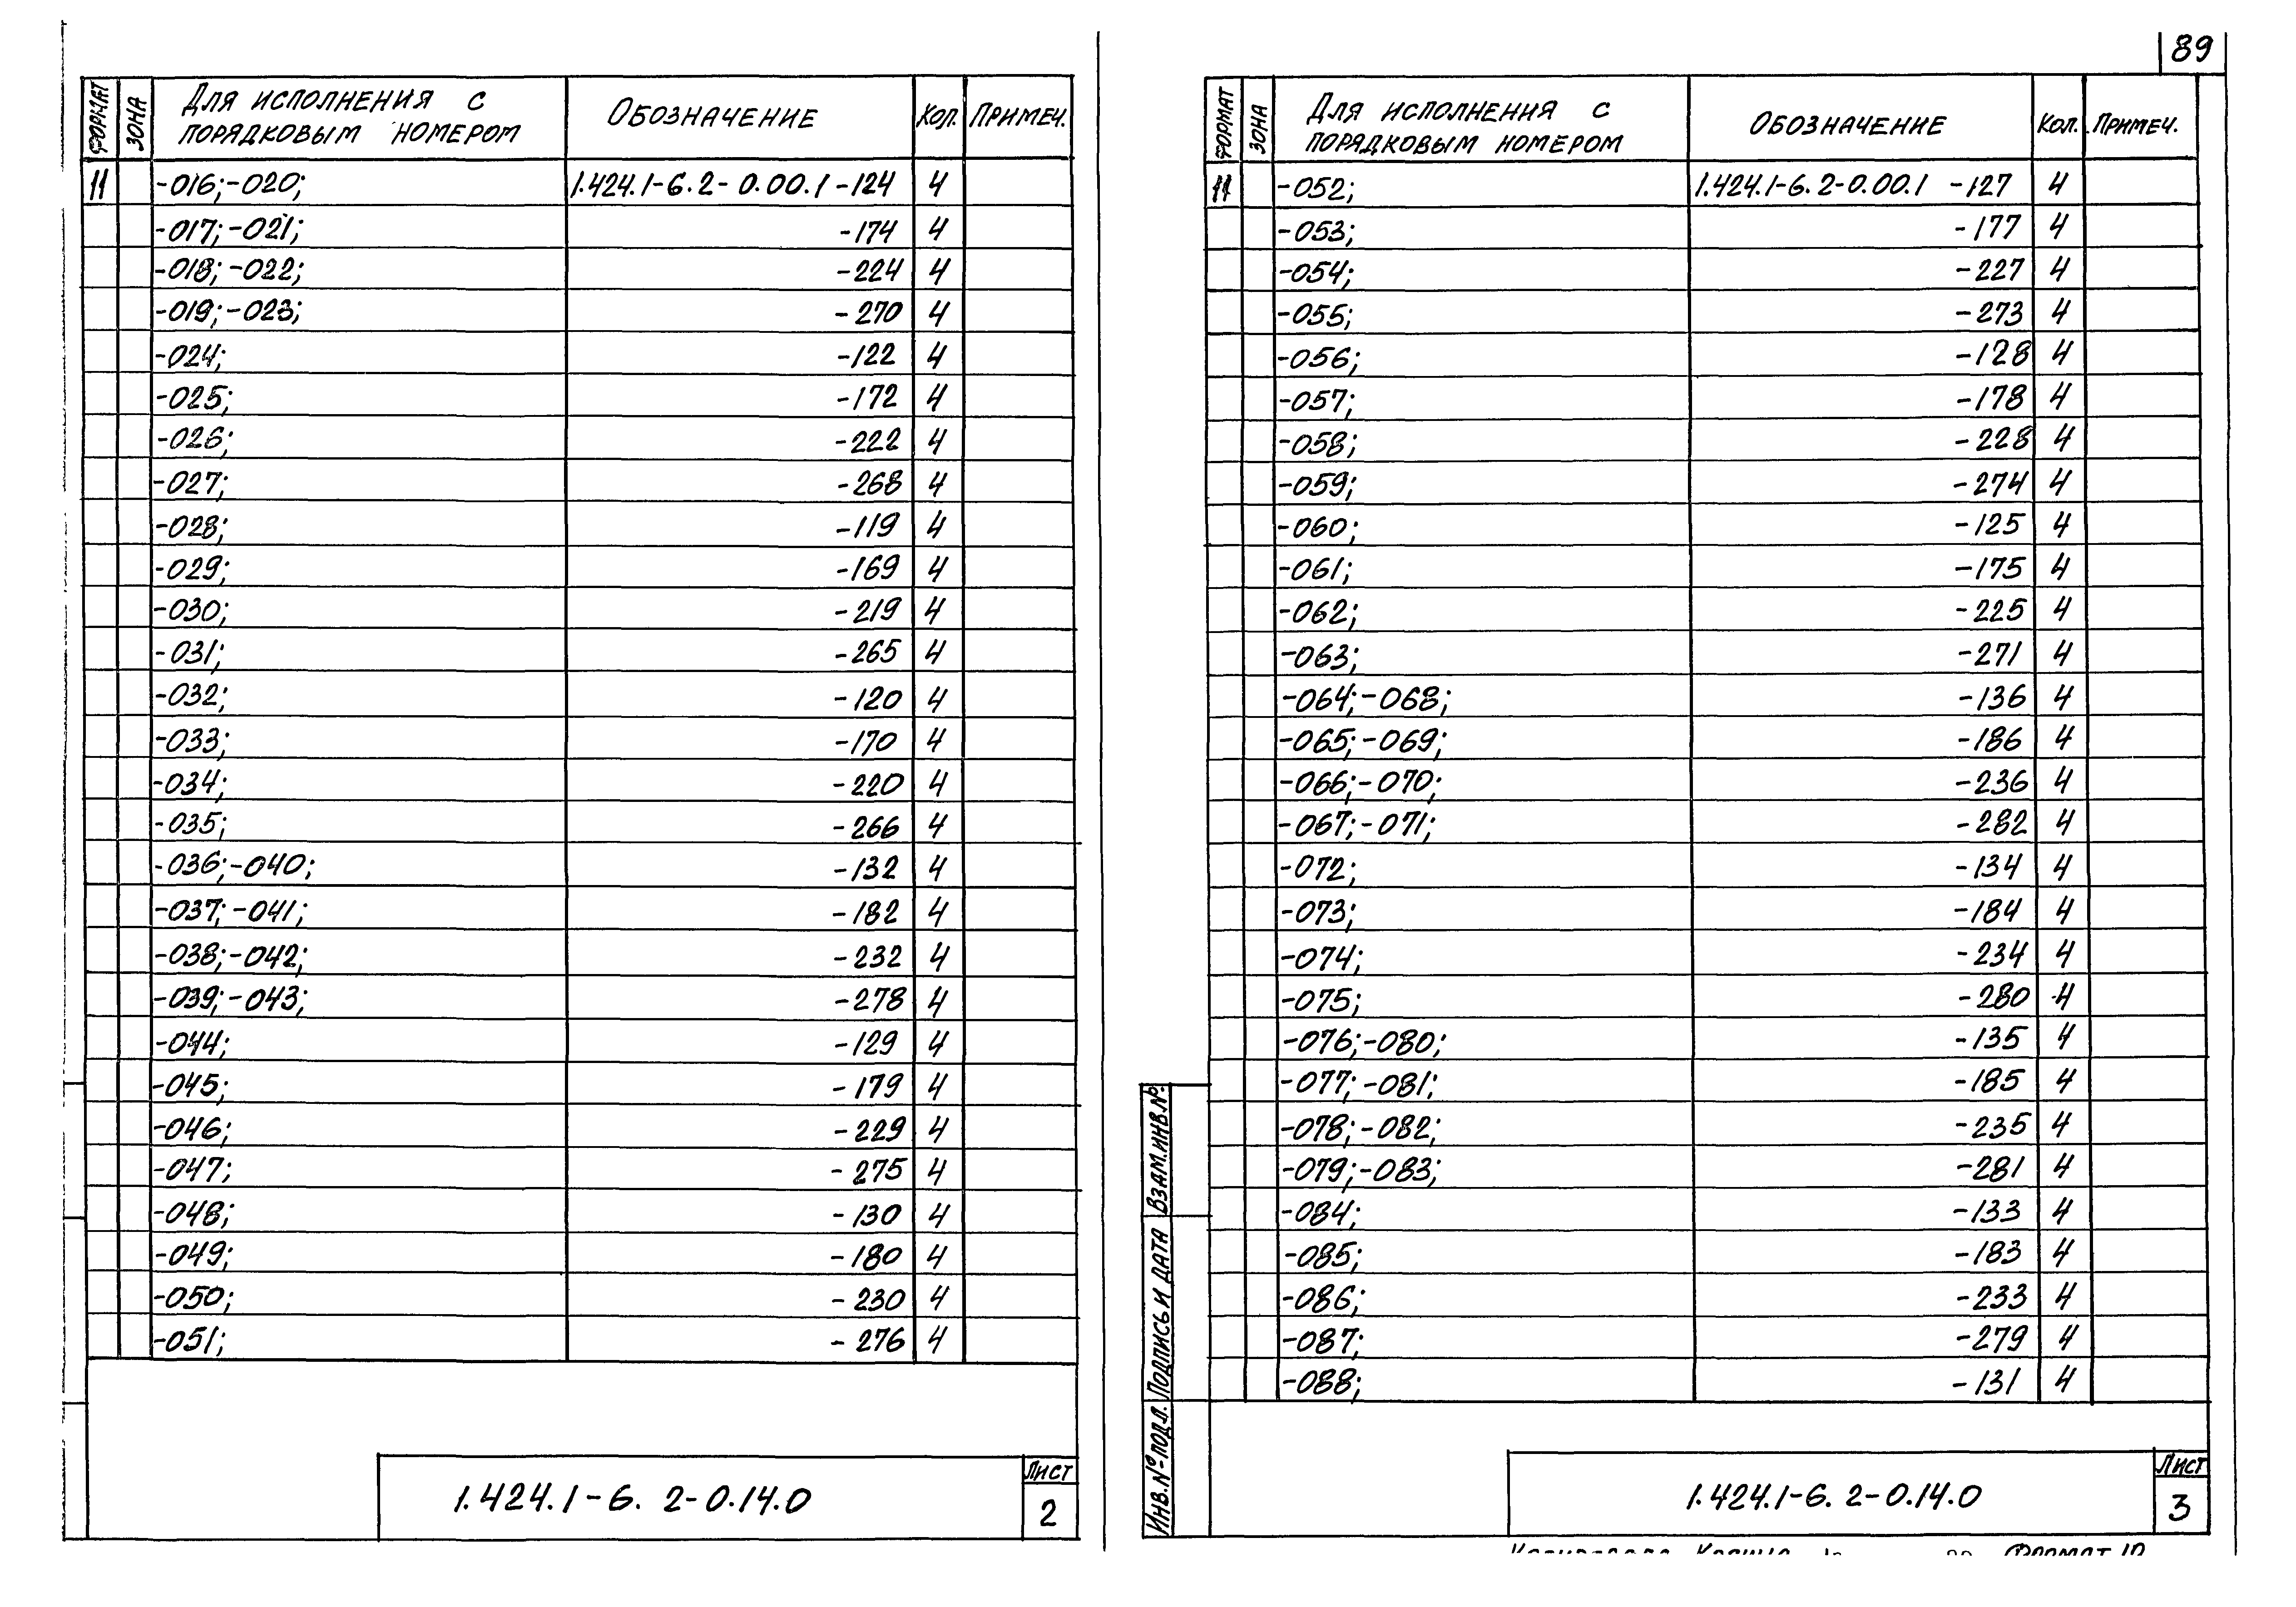 89
ФОРМАТ ЗОНА Для исполнения с порядковым номером Обозначение Кол. Примеч.
11 -016;-020; 1.424.1-6.2-0.00.1 -124 4
-017;-021; -174 4
-018;-022; -224 4
-019;-023; -270 4
-024; -122 4
-025; -172 4
-026; -222 4
-027; -268 4
-028; -119 4
-029; -169 4
-030; -219 4
-031; -265 4
-032; -120 4
-033; -170 4
-034; -220 4
-035; -266 4
-036;-040; -132 4
-037;-041; -182 4
-038;-042; -232 4
-039;-043; -278 4
-044; -129 4
-045; -179 4
-046; -229 4
-047; -275 4
-048; -130 4
-049; -180 4
-050; -230 4
-051; -276 4
1.424.1-6. 2-0.14.0
Лист
2
ФОРМАТ ЗОНА Для исполнения с порядковым номером Обозначение Кол. Примеч.
11 -052; 1.424.1-6.2-0.00.1 -127 4
-053; -177 4
-054; -227 4
-055; -273 4
-056; -128 4
-057; -178 4
-058; -228 4
-059; -274 4
-060; -125 4
-061; -175 4
-062; -225 4
-063; -271 4
-064;-068; -136 4
-065;-069; -186 4
-066;-070; -236 4
-067;-071; -282 4
-072; -134 4
-073; -184 4
-074; -234 4
-075; -280 4
-076;-080; -135 4
-077;-081; -185 4
-078;-082; -235 4
-079;-083; -281 4
-084; -133 4
-085; -183 4
-086; -233 4
-087; -279 4
-088; -131 4
Инв.№подл. Подпись и дата Взам.инв.№
1.424.1-6. 2-0.14.0
Лист
3
Формат